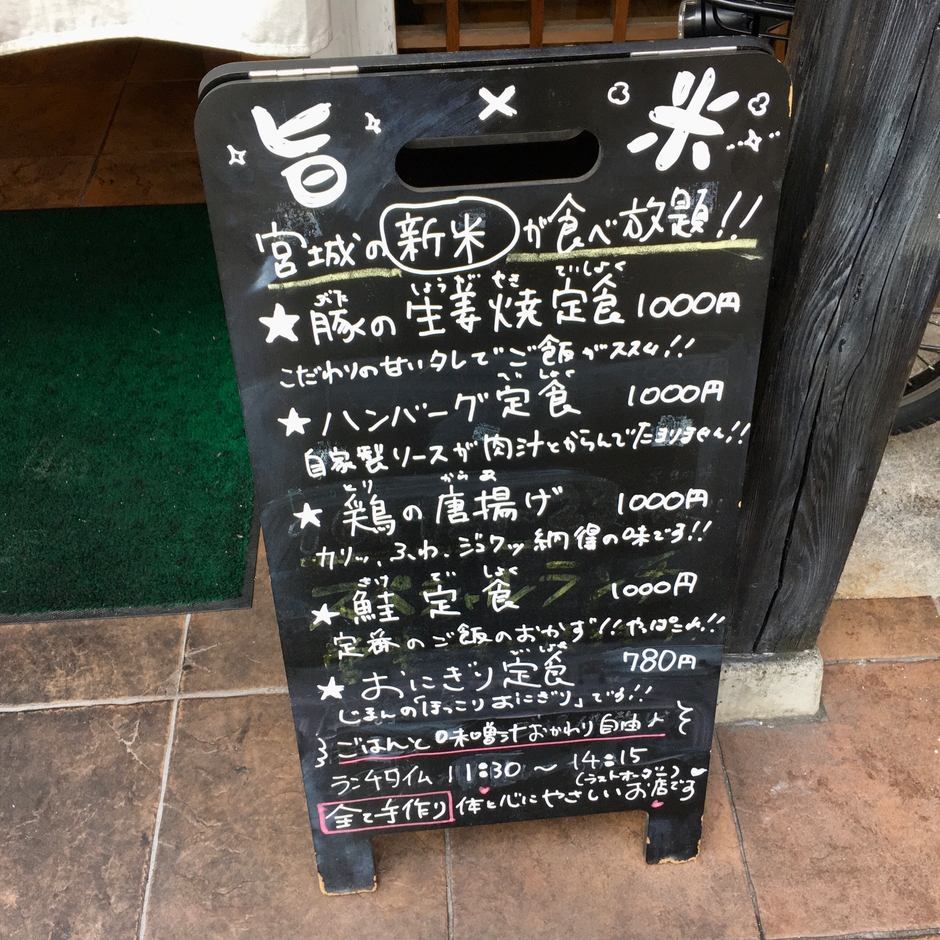 旨 × 米
宮城の新米が食べ放題!!
★豚の生姜焼定食 1000円
ぶた しょうが やき でいしょく
こだわりの甘いタレでご飯がススム!!
★ハンバーグ定食 1000円
でしょく
自家製ソースが肉汁とからんでたまりません!!
★鶏の唐揚げ 1000円
とり からあ
カリッ、ふわ、ジュワッ納得の味です!!
★鮭定食 1000円
さけ てい しょく
定番のご飯のおかず!!やっぱこれ!!
★おにぎり定食 780円
じまんの「ほっこりおにぎり」です!!
ごはんと味噌汁おかわり自由♪
ランチタイム 11:30〜14:15
(ラストオーダー)
全て手作り 体と心にやさしいお店です